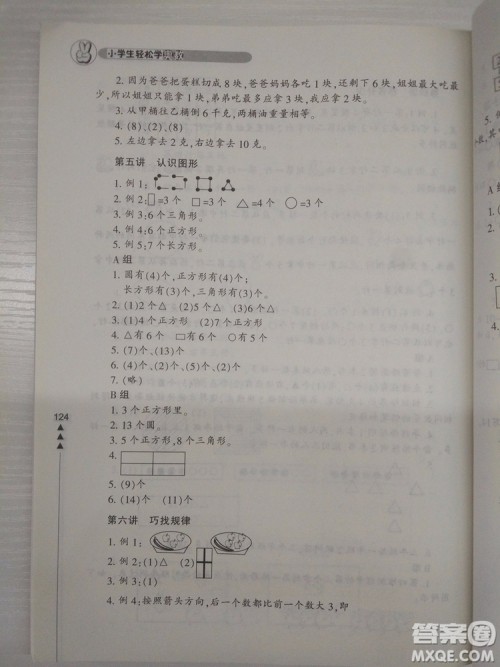 小学生轻松学奥数
2. 因为爸爸把蛋糕切成 8 块,爸爸妈妈各吃 1 块,还剩下 6 块,姐姐又吃最
少,所以姐姐只能拿 1 块,弟弟吃最多应拿 3 块,我应拿 2 块。
3. 从甲桶往乙桶倒 6 千克,两桶油重量相等。
4. (8)、(2)、(8)
5. 左边拿去 2 克,右边拿去 10 克。
第五讲 认识图形
1. 例 1:
2. 例 2:□=3 个 □=3 个 △=4 个 ○=3 个
3. 例 3:6 个三角形。
4. 例 4:6 个正方形。
5. 例 5:7 个长方形。
A 组
1. 圆有(4)个,正方形有(4)个;
长方形有(3)个,三角形有(3)个。
2. (1)2 个△ (2)5 个△
3. (1)4 个正方形 (2)5 个正方形
4. △有 6 个 □有 6 个 ○有 6 个
5. (7)个、(13)个
6. (4)个、(10)个
7. (略)
B 组
1. 3 个正方形里。
2. 13 个圆。
3. 5 个正方形,8 个三角形。
4.
5. (9)个
6. (14)个 (11)个
第六讲 巧找规律
1. 例 1:
2. 例 2:(1)△ (2)
3. 例 3:(1)
4. 例 4:按照箭头方向,后一个数都比前一个数大 3,即
124
答案圈
MXQE.COM